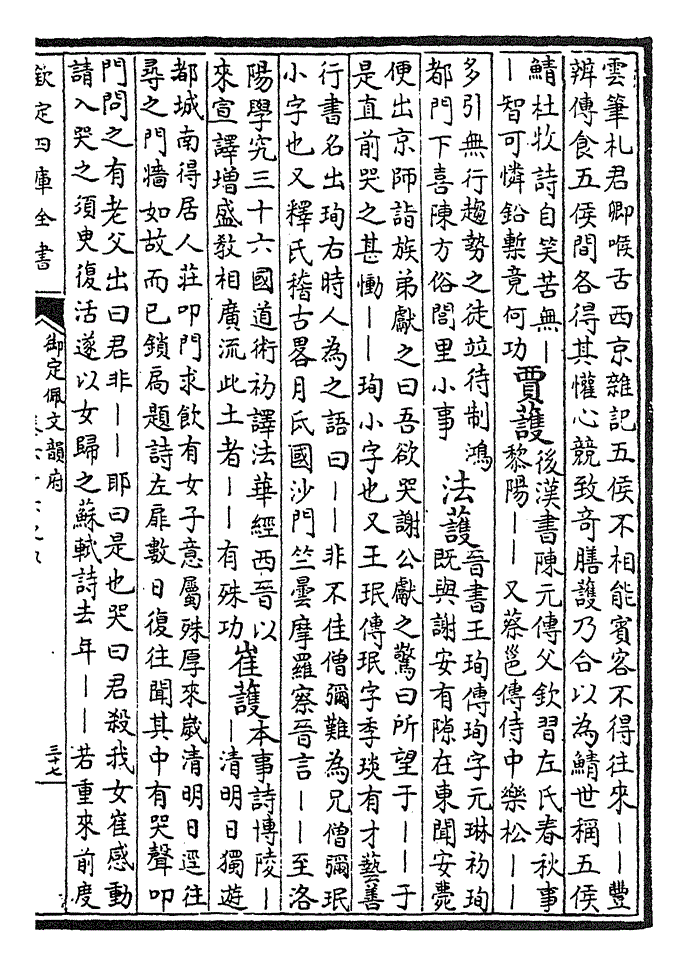 雲筆札君卿喉舌西京雜記五侯不相能賓客不得往來——豐
辨傳食五侯間各得其懽心競致奇膳護乃合以為鯖世稱五侯
鯖杜牧詩自笑苦無—
—智可憐鉛槧竟何功
賈護
後漢書陳元傳父欽習左氏春秋事
黎陽——又蔡邕傳侍中樂松——
多引無行趨勢之徒竝待制鴻
都門下喜陳方俗閭里小事
法護
晉書王珣傳珣字元琳初珣
既與謝安有隙在東聞安薨
便出京師詣族弟獻之曰吾欲哭謝公獻之驚曰所望于——于
是直前哭之甚慟——珣小字也又王珉傳珉字季琰有才藝善
行書名出珣右時人為之語曰——非不佳僧彌難為兄僧彌珉
小字也又釋氏稽古畧月氏國沙門竺曇摩羅察晉言——至洛
陽學究三十六國道術初譯法華經西晉以
來宣譯增盛教相廣流此土者——有殊功
崔護
本事詩博陵—
—清明日獨遊
都城南得居人莊叩門求飲有女子意屬殊厚來歲清明日逕往
尋之門墻如故而已鎖扃題詩左扉數日復往聞其中有哭聲叩
門問之有老父出曰君非——耶曰是也哭曰君殺我女崔感動
請入哭之須臾復活遂以女歸之蘇軾詩去年——若重來前度
欽定四庫全書
御定佩文韻府
三十七